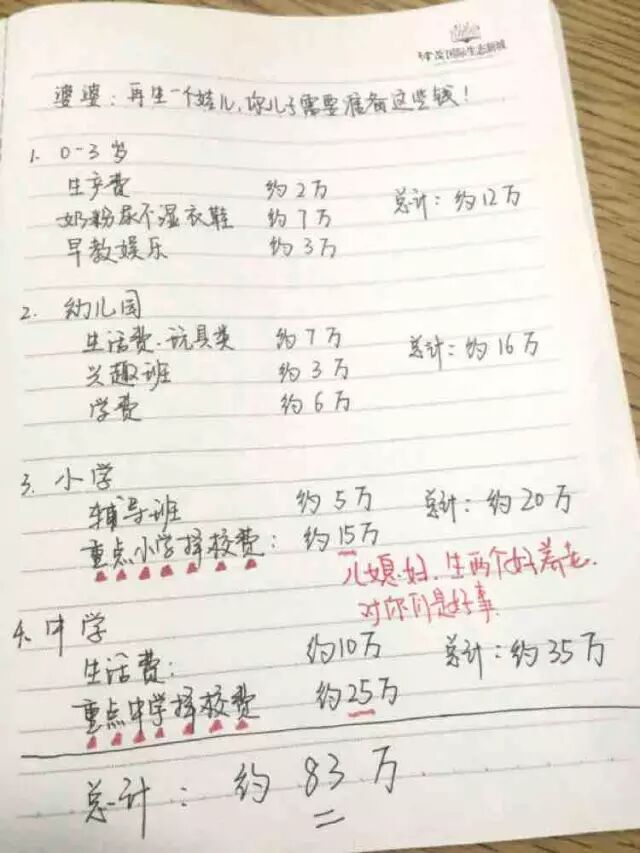 国际生态新城
婆婆:再生一个娃儿,你儿子需要准备这些钱!
1. 0-3岁
生产费 约2万
奶粉尿不湿衣鞋 约7万 总计:约12万
早教娱乐 约3万
2. 幼儿园
生活费、玩具类 约7万 总计:约16万
兴趣班 约3万
学费 约6万
3. 小学
辅导班 约5万 总计:约20万
重点小学择校费: 约15万
儿媳妇,生两个好养老,
对你们是好事.
4. 中学
生活费: 约10万 总计:约35万
重点中学择校费 约25万
总计: 约83万